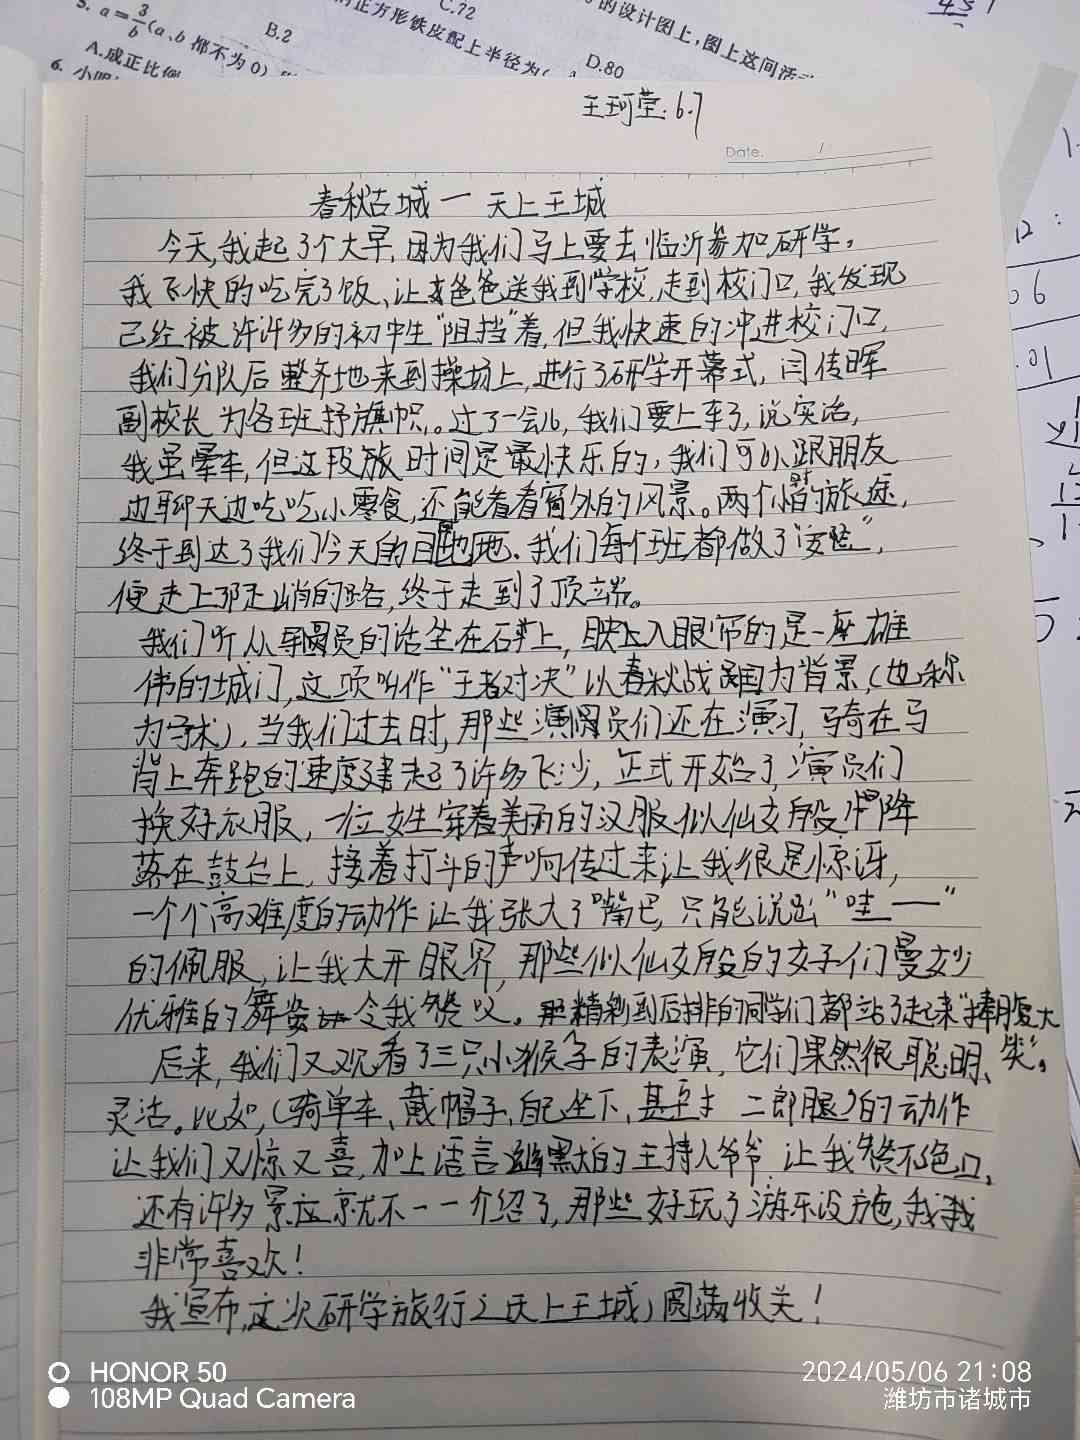 5. a=3/b(a、b都不为0)
C.72
B.2
正方形铁皮配上半径为(
的设计图上,图上这间活
A.成正比例
D.80
6.
王珂莹. 6.7
Date. /
春秋古城一天上王城
今天,我起了个大早,因为我们马上要去临沂参加研学。
我飞快的吃完了饭、让爸爸送我到学校,走到校门口,我发现
已经被许许多多的初中生"阻挡"着,但我快速的冲进校门口,
我们分队后整齐地来到操场上,进行了研学开幕式,闫传晖
副校长为各班授旗帜。过了一会儿,我们要上车了,说实话,
我虽晕车,但这段旅时间是最快乐的,我们可以跟朋友
边聊天边吃吃小零食,还能看看窗外的风景。两个小时的旅途,
终于到达了我们今天的目的地。我们每个班都做了
便走上那陡峭的路,终于走到了顶端。
我们听从导演员的话坐在石头上,映入眼帘的是一座雄
伟的城门,这项叫作"王者对决"以春秋战国为背景,(也称
为马术),当我们过去时,那些演员们还在演习,骑在马
背上奔跑的速度建起了许多飞沙,正式开始了,演员们
换好衣服,一位女生穿着美丽的汉服似仙女般降
落在鼓台上,接着打斗的声响传过来让我很是惊讶,
一个个高难度的动作让我张大了嘴巴,只能说出"哇——"
的佩服,让我大开眼界,那些似仙女般的女子们曼妙
优雅的舞姿令我赞叹。精彩到后排的同学们都站了起来"捧腹大
笑"。
后来,我们又观看了三只小猴子的表演,它们果然很聪明、
灵活。比如,(骑单车、戴帽子、自己坐下、甚至 二郎腿)的动作
让我们又惊又喜,加上语言幽默的主持人爷爷 让我赞不绝口,
还有许多景区就不一一介绍了,那些好玩了游乐设施,我我
非常喜欢!
我宣布,这次研学旅行之天上王城,圆满收关!
HONOR 50
108MP Quad Camera
2024/05/06 21:08
潍坊市诸城市